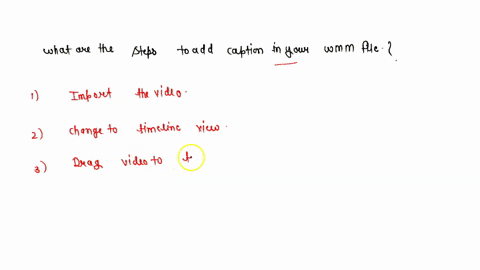 what are the steps to add caption in your wmm file ?
1) Import the video.
2) change to timeline view.
3) Drag video to t